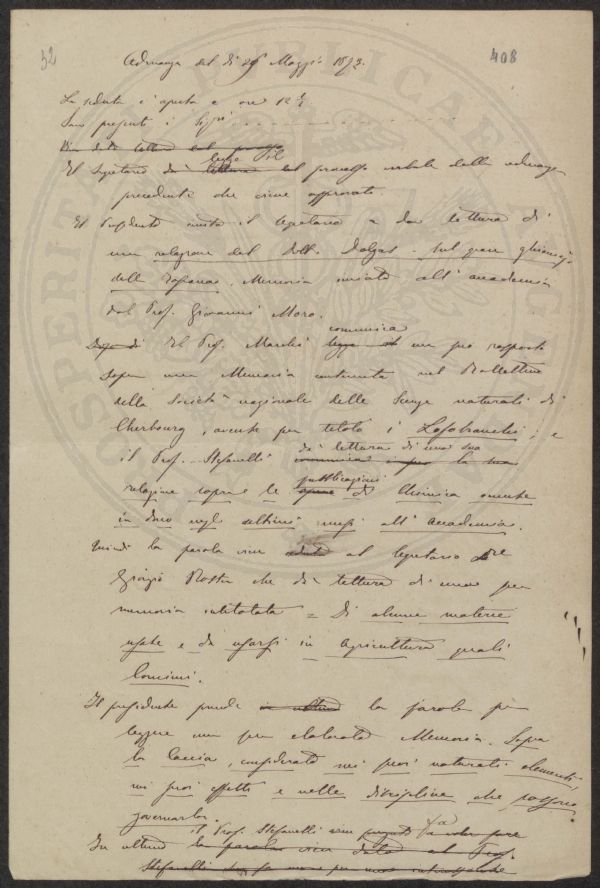 32 408
Adunanza del dì 26 Maggio 1872.
La seduta è aperta a ore 12 1/2
Sono presenti i Sigri
Vien data lettura del processo
legge il
Il Segretario dà lettura del processo verbale della adunanza
precedente che viene approvato.
Il Presidente invita il Segretario a dar lettura di
una relazione del Dott. Dalgas sul gran
della Toscana. Memoria inviata all'accademia
dal Prof. Giovanni Moro.
comunica
Dopo di Il Prof. Marchi legge un suo rapporto
sopra una Memoria contenuta nel Bollettino
della Società nazionale delle Scienze naturali di
Cherbourg, avente per titolo i Lofobranchi; e
dà lettura di una sua
il Prof. Stefanelli comunica la sua
pubblicazioni
relazione sopra le opere di Chimica venute
in dono negli ultimi mesi all'Accademia.
Quindi la parola vien ceduta al Segretario Dre
Giorgio Roster che dà lettura di una sua
memoria intitolata = Di alcune materie
usate e da usarsi in Agricoltura quali
Concimi.
Il presidente prende la parola per
leggere una sua elaborata Memoria. Sopra
la Caccia, considerata nei suoi naturali elementi,
nei suoi effetti e nelle discipline che possono
governarla.
il Prof. Stefanelli vien pregato a voler fare
In ultimo la parola vien data al Prof.
Stefanelli